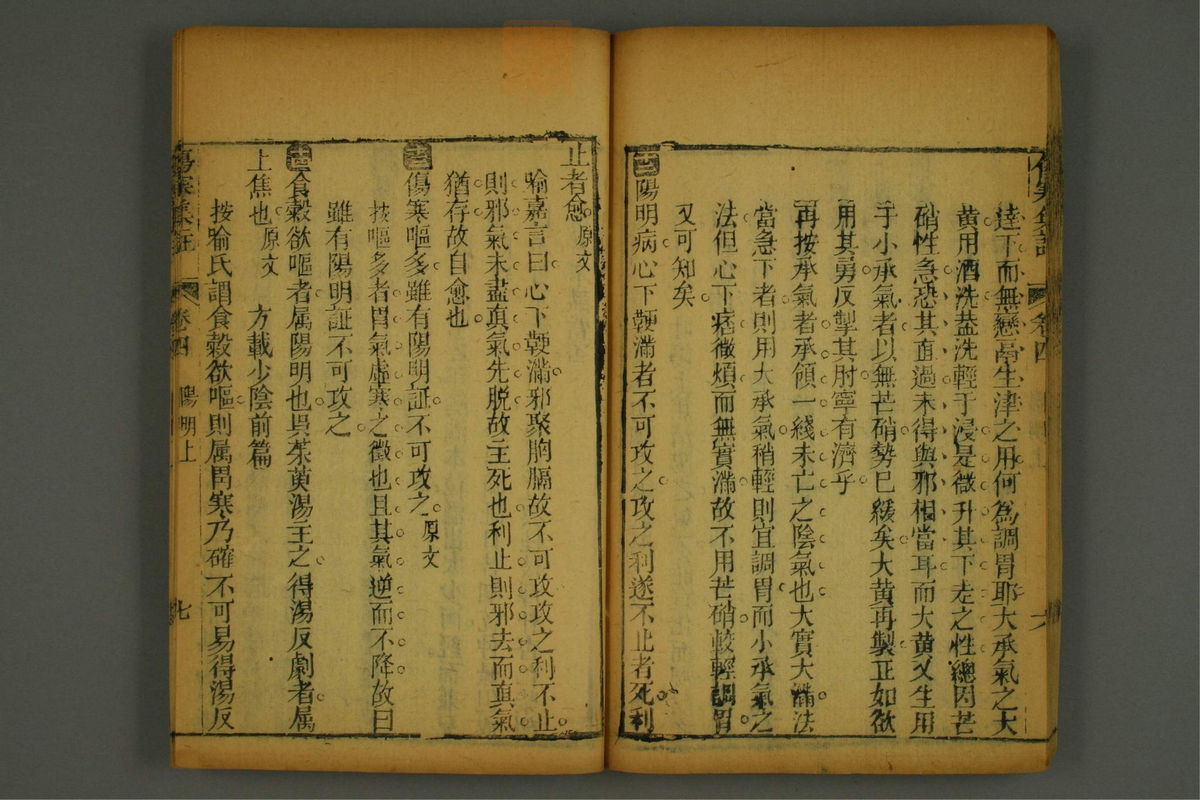 達下而無戀鬲生津之用何爲調胃耶大承氣之大
黄用酒洗葢洗輕于浸是微升其下走之性總因芒
硝性急恐其直過未得與邪相當耳而大黄又生用
于小承氣者以無芒硝勢巳緩矣大黄再製正如欲
用其勇反掣其肘寧有濟乎
再按承氣者承領一綫未亡之陰氣也大實大滿法
當急下者則用大承氣稍輕則宜調胃而小承氣之
法但心下痞微煩而無實滿故不用芒硝較輕調胃
又可知矣
陽明病心下鞕滿者不可攻之攻之利遂不止者死利
止者愈原文
喻嘉言曰心下鞕滿邪聚胸膈故不可攻攻之利不止
則邪氣未盡真氣先脱故主死也利止則邪去而真氣
猶存故自愈也
傷寒嘔多雖有陽明証不可攻之原文
按嘔多者胃氣虛寒之徵也且其氣逆而不降故曰
雖有陽明証不可攻之
食穀欲嘔者属陽明也吳茱萸湯主之得湯反劇者属
上焦也原文 方載少陰前篇
按喻氏謂食穀欲嘔則属胃寒乃確不可易得湯反
卷四 陽明上 七